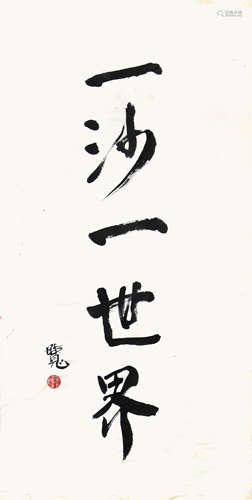 一沙一世界